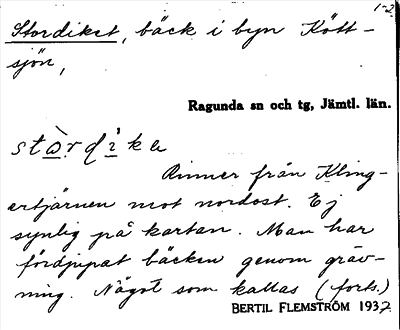 1-2
Stordiket, bäck i byn Kött-
sjön,
Ragunda sn och tg, Jämtl. län.
stò̱r di̱̇ke
Rinner från Kling-
ertjärnen mot nordost. Ej
synlig på kartan. Man har
fördjupat bäcken genom gräv-
ning. Något som kallas (forts.)
BERTIL FLEMSTRÖM 1937.